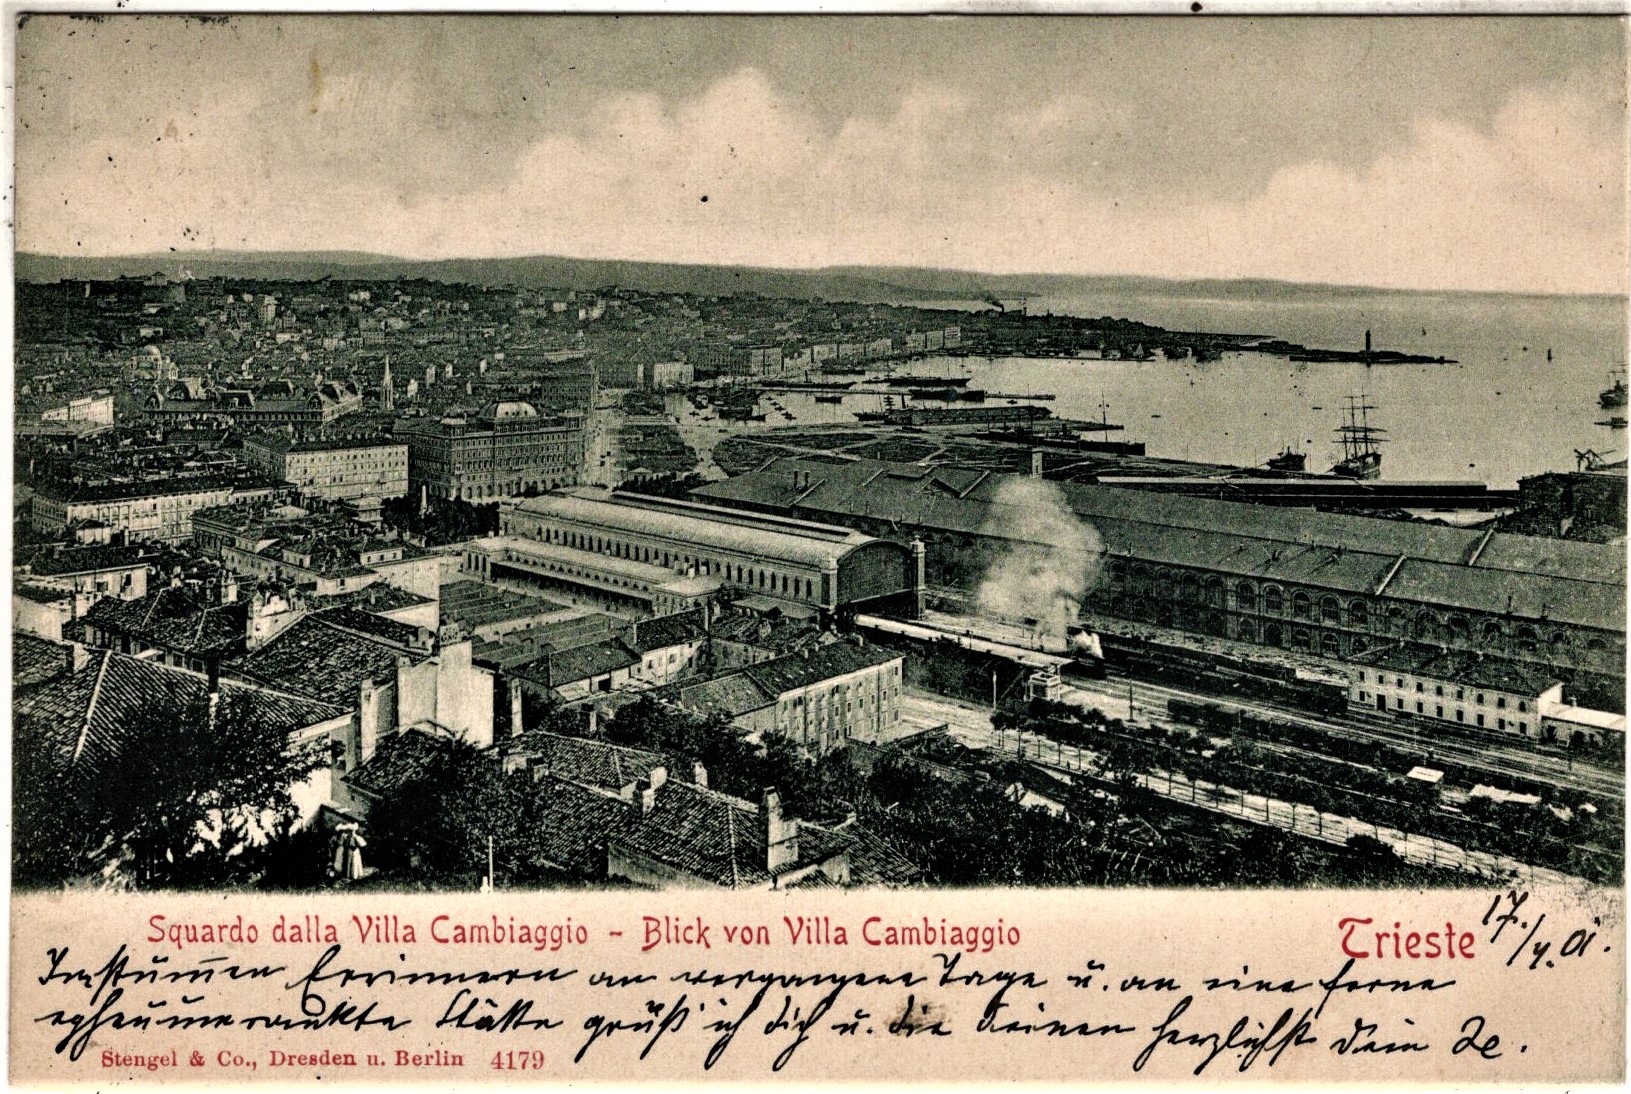 Sguardo dalla Villa Cambiaggio – Blick von Villa Cambiaggio
Trieste
17./4.01.
Erinnern an vergangene Tage u. an eine ferne
epheuumrankte Stätte grüßt ich dich u. die Deinen herzlichst Dein
Stengel & Co., Dresden u. Berlin 4179